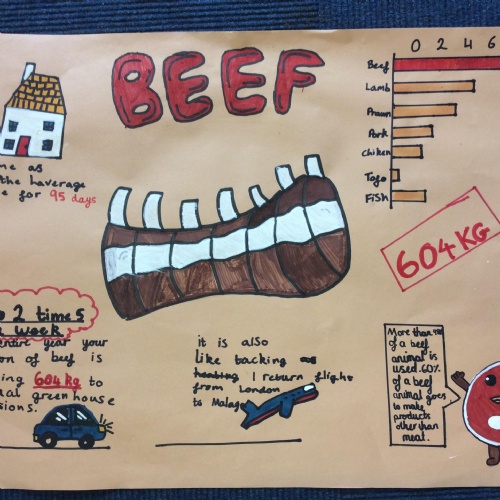 BEEF
0 2 4 6
Beef
Lamb
Prawn
Pork
Chiken
Tofo
Fish
me as
the haverage
e for 95 days
604 KG
2 times
week
entire year your
on of beef is
ing 604 kg to
al green house
sions.
it is also
like tacking
heating 1 return flight
from London
to Malaga
More than
of a beef
animal is
used. 60%
of a beef
animal goes
to make
products
other than
meat.